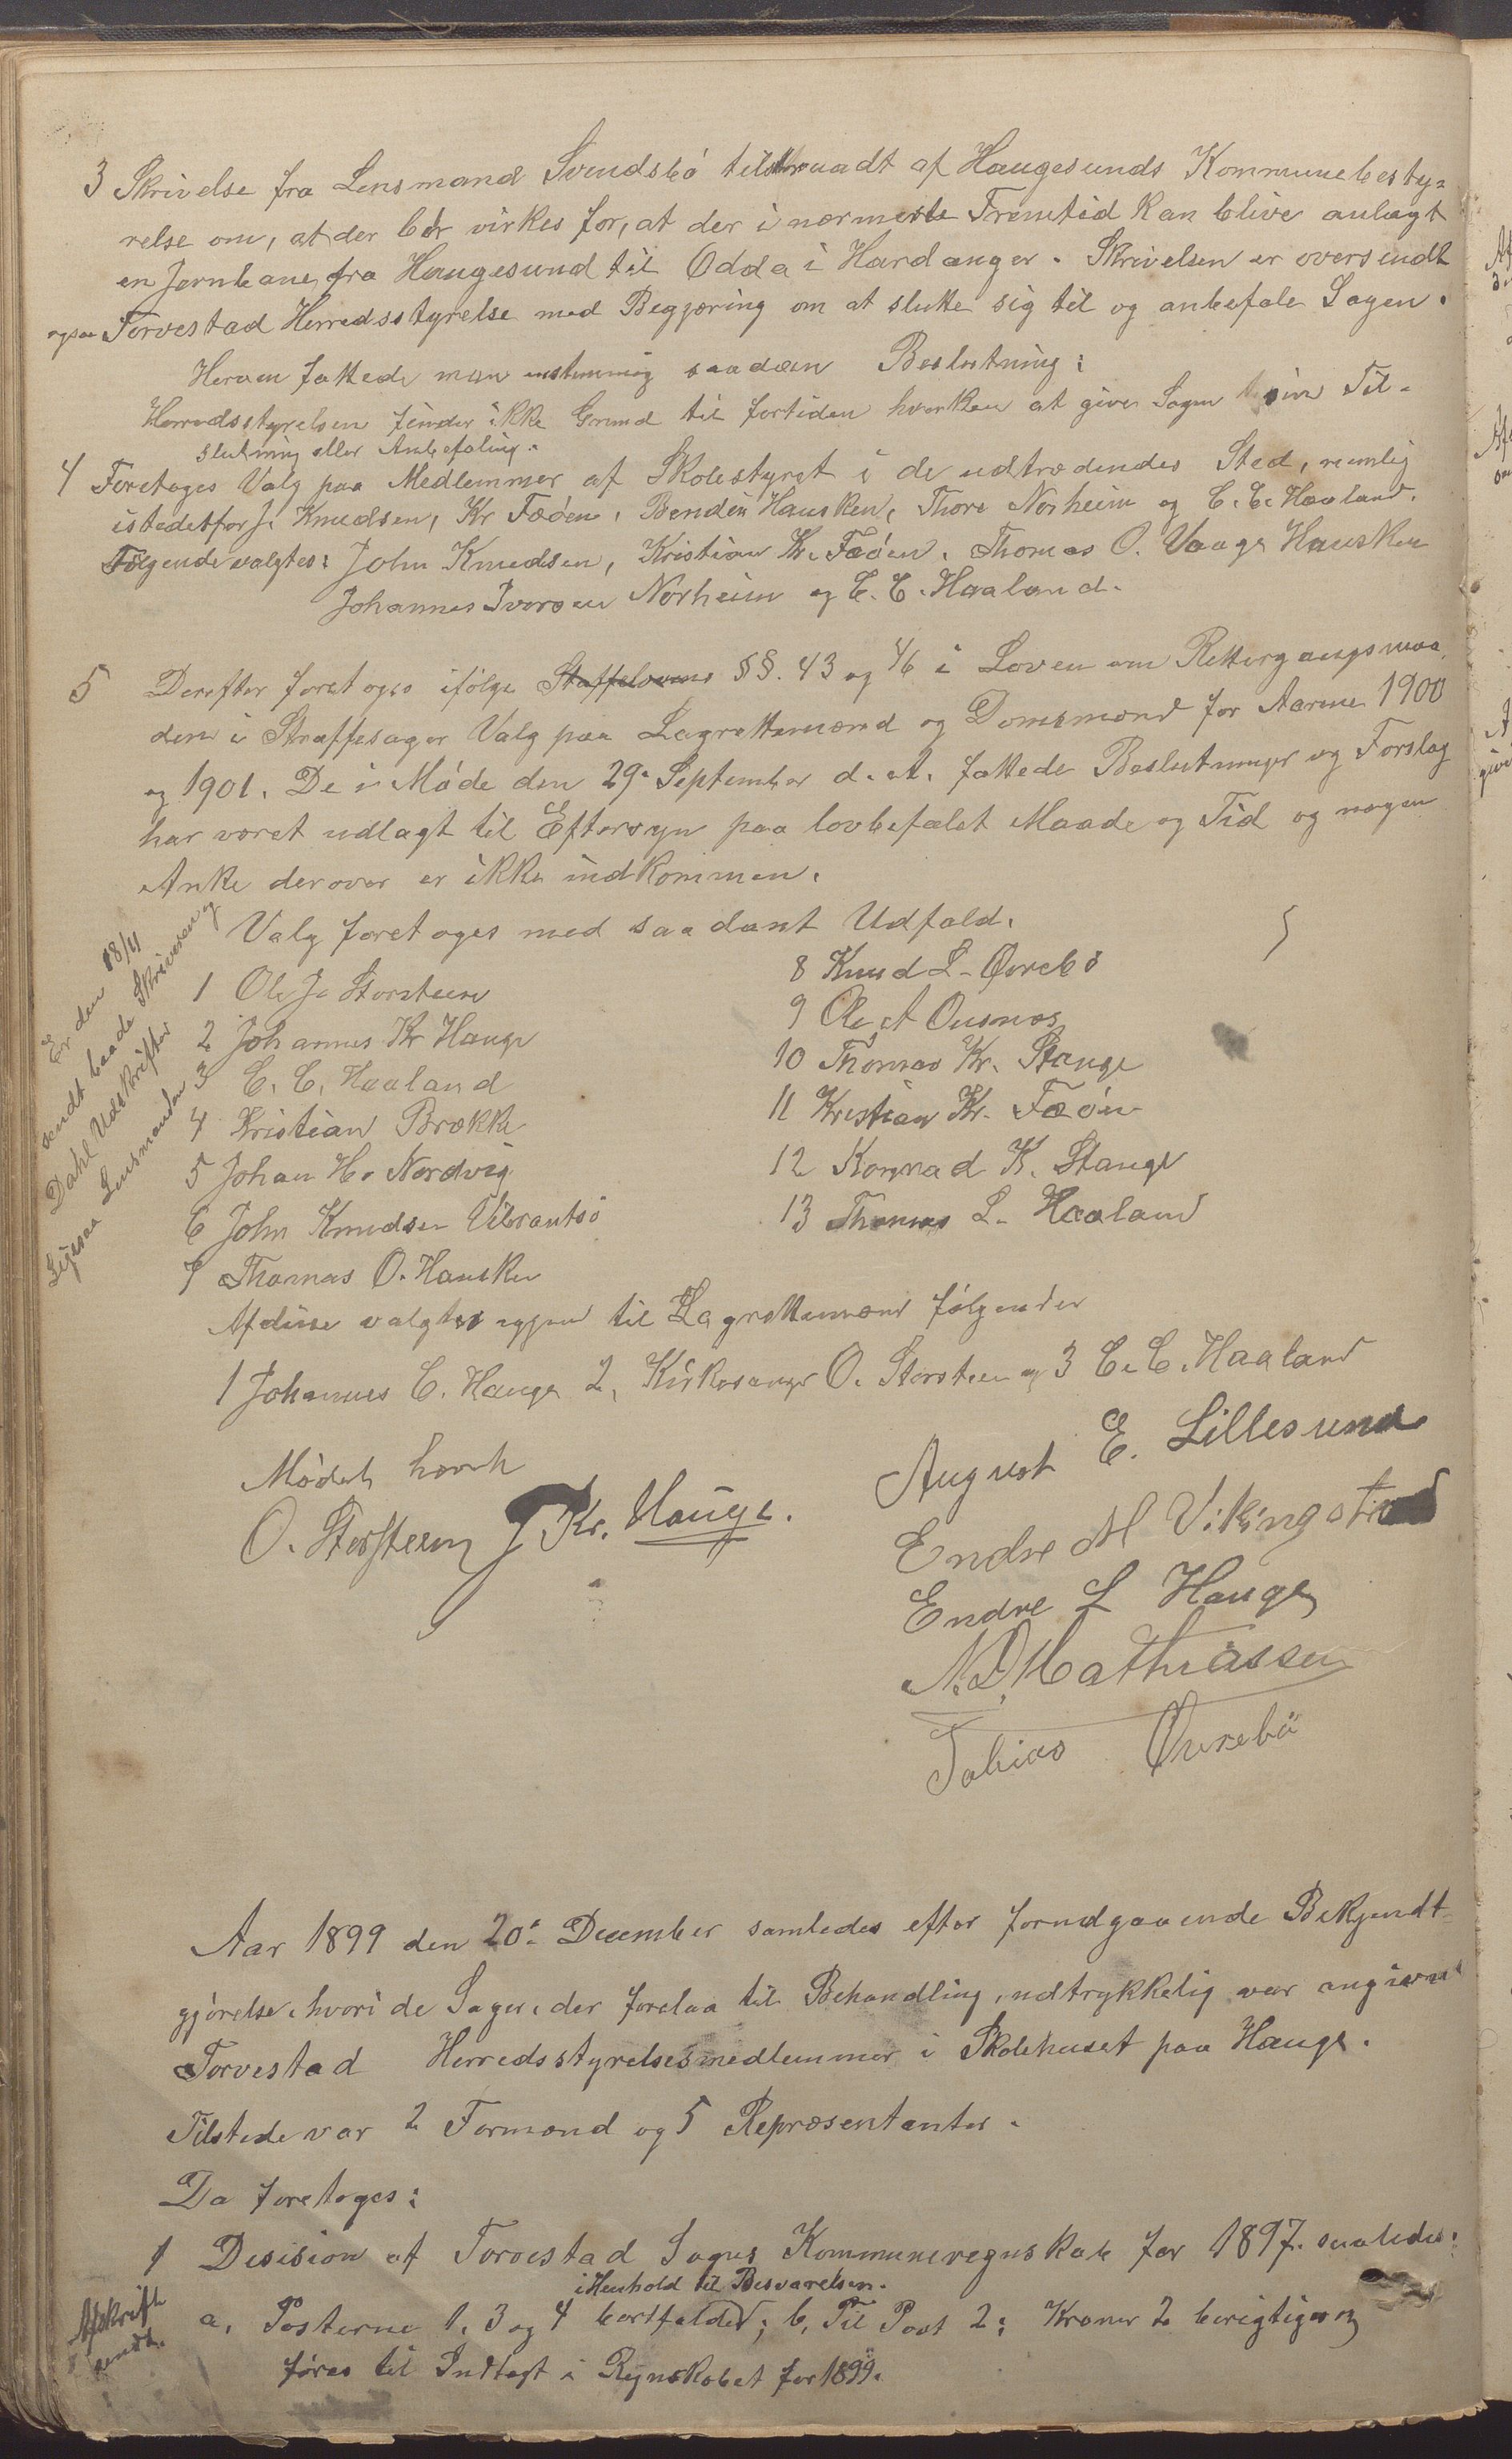 3 Skrivelse fra Lensmand Svendsbö tiltraadt af Haugesunds Kommunebesty=
relse om, at der bör virkes for, at der i nærmeste Fremtid kan blive anlagt
en Jernbane fra Haugesund til Odda i Hardanger. Skrivelsen er oversendt
ogsaa Torvestad Herredsstyrelse med Begjæring om at slutte sig til og anbefale Sagen.
Herom fattede man enstemmig saadan Beslutning:
Herredsstyrelsen finder ikke Grund til fortiden hverken at give Sagen sin Til-
slutning eller Anbefaling.
4 Foretoges Valg paa Medlemmer af Skolestyret i de udtrædendes Sted, nemlig
istedetfor J. Knudsen, Kr Fæöen, Bendin Hausken, Thore Norheim og C. C. Haaland.
Fölgende valgtes: John Knudsen, Kristian Kr. Fæöen, Thomas O. Vaage Hausken
Johannes Iversen Norheim og C. C. Haaland.
5 Derefter foretoges ifölge Staffelovens §§. 43 og 46 i Loven om Rettergangsmaa
den i Straffesager Valg paa Lagrettemænd og Domsmænd for Aarene 1900
og 1901. De i Möde den 29. September d. A. fattede Beslutninger og Forslag
har været udlagt til Eftersyn paa lovbefalet Maade og Tid og nogen
Anke derover er ikke indkommen.
Valg foretoges med saadant Udfald.
Er den 18/11
sendt baade Skrivesen og
Dahl Udskrifter
Ligesaa Lensmanden
1 Ole J. Storsteen
2 Johannes Kr Hauge
3 C. C. Haaland
4 Kristian Brække
5 Johan H. Nordvig
6 John Knudsen Vibrantsö
7 Thomas O. Hausken
8 Knud L. Øvrebö
9 Ole A Ousnæs
10 Thomas Kr. Stange
11 Kristian Kr. Fæöen
12 Konrad K. Stange
13 Thomas L. Haaland
Af disse valgtes igjen til Lagrettemænd fölgende
1 Johannes C. Hauge 2, Kirkesanger O. Storsteen og 3 C. C. Haaland
Mödet hævet
O. Storsteen J Kr. Hauge.
August E. Lillesund
Endre M Vikingstad
Endre L Hauge
N. D. Mathiassen
Tobias Øvrebö
Aar 1899 den 20. December samledes efter forudgaaende Bekjendt-
gjörelse, hvori de Sager, der forelaa til Behandling, udtrykkelig var angivne
Torvestad Herredsstyrelsesmedlemmer i Skolehuset paa Hauge.
Tilstede var 2 Formænd og 5 Repræsentanter.
Da foretoges:
1 Desision af Torvestad Sogns Kommuneregnskab for 1897. saaledes:
i Henhold til Besvarelsen.
a, Posterne 1, 3 og 4 bortfalder; b, Til Post 2: Kroner 2 berigtiges og
föres til Indtægt i Regnskabet for 1899.
Afskrift
sendt.